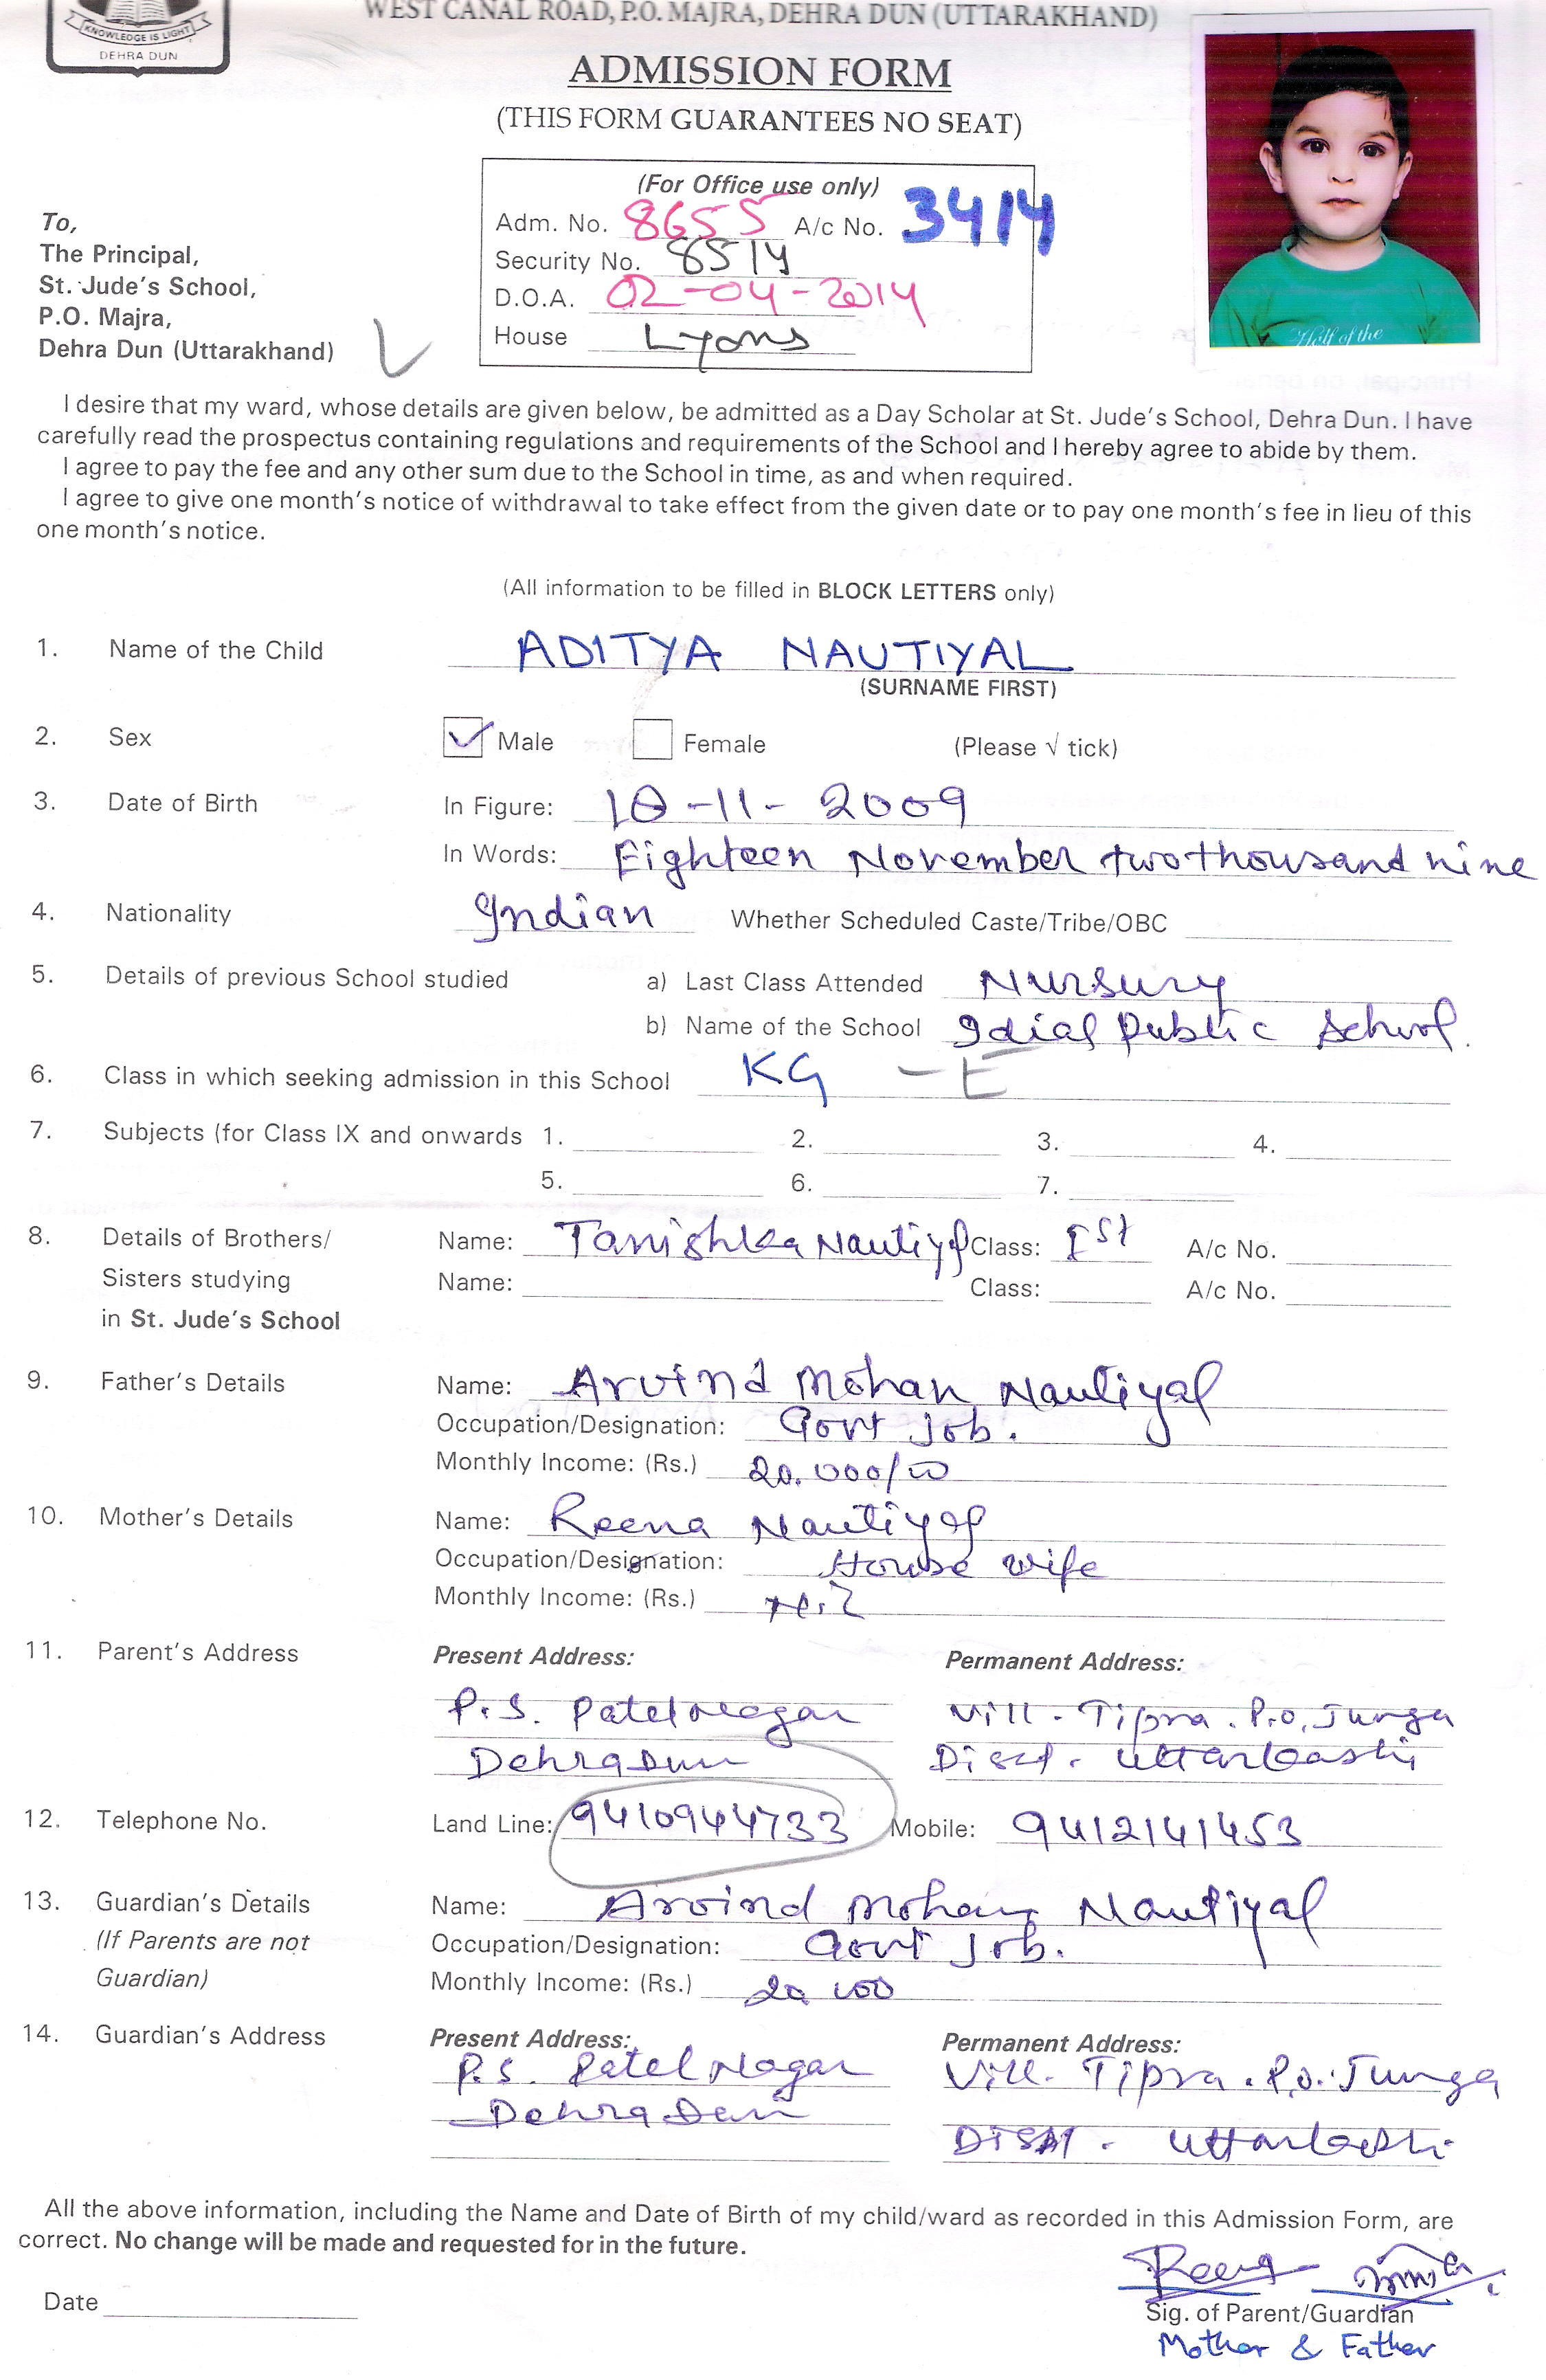 WEST CANAL ROAD, P.O. MAJRA, DEHRA DUN (UTTARAKHAND)
KNOWLEDGE IS LIGHT
DEHRA DUN
ADMISSION FORM
(THIS FORM GUARANTEES NO SEAT)
(For Office use only)
Adm. No. 8655 A/c No. 3414
Security No. 8514
D.O.A. 02-04-2014
House Lyons
Half of the
To,
The Principal,
St. Jude's School,
P.O. Majra,
Dehra Dun (Uttarakhand)
I desire that my ward, whose details are given below, be admitted as a Day Scholar at St. Jude's School, Dehra Dun. I have
carefully read the prospectus containing regulations and requirements of the School and I hereby agree to abide by them.
I agree to pay the fee and any other sum due to the School in time, as and when required.
I agree to give one month's notice of withdrawal to take effect from the given date or to pay one month's fee in lieu of this
one month's notice.
(All information to be filled in BLOCK LETTERS only)
1. Name of the Child ADITYA NAUTIYAL
(SURNAME FIRST)
2. Sex ✓ Male Female (Please √ tick)
3. Date of Birth In Figure: 18-11-2009
In Words: Eighteen November two thousand nine
4. Nationality Indian Whether Scheduled Caste/Tribe/OBC
5. Details of previous School studied a) Last Class Attended Nursury
b) Name of the School Idial Public School.
6. Class in which seeking admission in this School KG - E
7. Subjects (for Class IX and onwards 1. 2. 3. 4.
5. 6. 7.
8. Details of Brothers/ Name: Tanishka Nautiyal Class: Ist A/c No.
Sisters studying Name: Class: A/c No.
in St. Jude's School
9. Father's Details Name: Arvind Mohan Nautiyal
Occupation/Designation: Govt Job.
Monthly Income: (Rs.) 20.000/00
10. Mother's Details Name: Reena Nautiyal
Occupation/Designation: House wife
Monthly Income: (Rs.) Nil
11. Parent's Address Present Address: Permanent Address:
P.S. Patel Nagar Vill. Tipra. P.O. Junga
Dehradun Disst. Uttarkashi
12. Telephone No. Land Line: 9410944733 Mobile: 9412141453
13. Guardian's Details Name: Arvind Mohan Nautiyal
(If Parents are not Occupation/Designation: Govt Job.
Guardian) Monthly Income: (Rs.)
14. Guardian's Address Present Address: Permanent Address:
P.S. Patel Nagar Vill. Tipra. P.O. Junga
Dehradun Disst. Uttarkashi
All the above information, including the Name and Date of Birth of my child/ward as recorded in this Admission Form, are
correct. No change will be made and requested for in the future.
Reena
Date Sig. of Parent/Guardian
Mother & Father